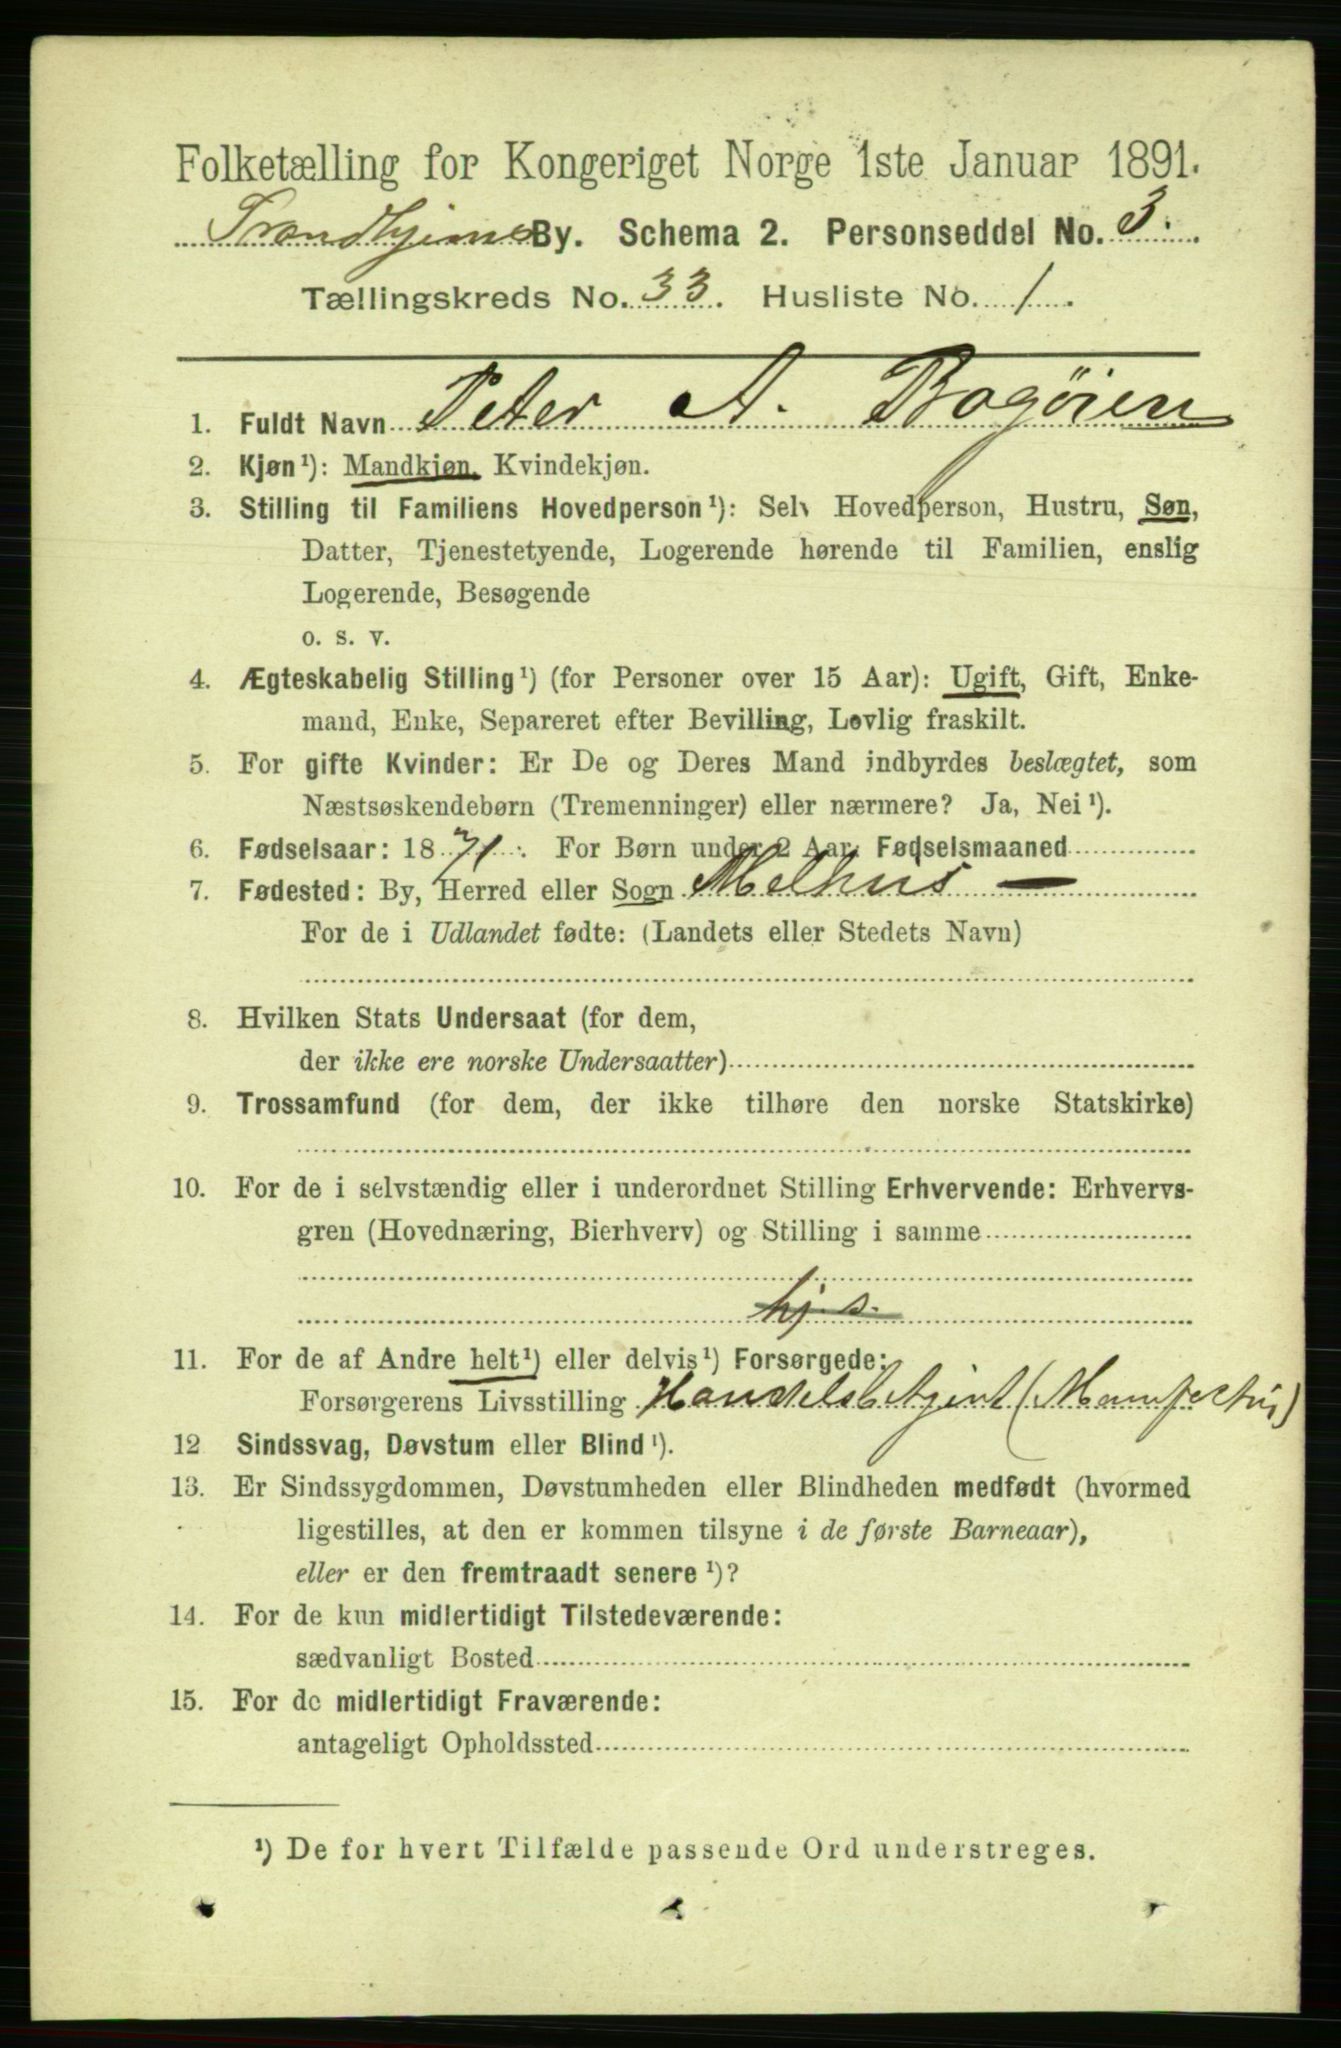 Folketælling for Kongeriget Norge 1ste Januar 1891.
Trondhjems By. Schema 2. Personseddel No. 3.
Tællingskreds No. 33. Husliste No. 1.
1. Fuldt Navn Peter A. Bogøien
2. Kjøn¹): Mandkjøn, Kvindekjøn.
3. Stilling til Familiens Hovedperson¹): Selv Hovedperson, Hustru, Søn,
Datter, Tjenestetyende, Logerende hørende til Familien, enslig
Logerende, Besøgende
o. s. v.
4. Ægteskabelig Stilling¹) (for Personer over 15 Aar): Ugift, Gift, Enke-
mand, Enke, Separeret efter Bevilling, Lovlig fraskilt.
5. For gifte Kvinder: Er De og Deres Mand indbyrdes beslægtet, som
Næstsøskendebørn (Tremenninger) eller nærmere? Ja, Nei¹).
6. Fødselsaar: 1871. For Børn under 2 Aar, Fødselsmaaned
7. Fødested: By, Herred eller Sogn Melhus —
For de i Udlandet fødte: (Landets eller Stedets Navn)
8. Hvilken Stats Undersaat (for dem,
der ikke ere norske Undersaatter)
9. Trossamfund (for dem, der ikke tilhøre den norske Statskirke)
10. For de i selvstændig eller i underordnet Stilling Erhvervende: Erhvervs-
gren (Hovednæring, Bierhverv) og Stilling i samme
hj. s.
11. For de af Andre helt¹) eller delvis¹) Forsørgede:
Forsørgerens Livsstilling Handelsbetjent (Manufaktur)
12 Sindssvag, Døvstum eller Blind¹).
13. Er Sindssygdommen, Døvstumheden eller Blindheden medfødt (hvormed
ligestilles, at den er kommen tilsyne i de første Barneaar),
eller er den fremtraadt senere¹)?
14. For de kun midlertidigt Tilstedeværende:
sædvanligt Bosted
15. For de midlertidigt Fraværende:
antageligt Opholdssted
¹) De for hvert Tilfælde passende Ord understreges.